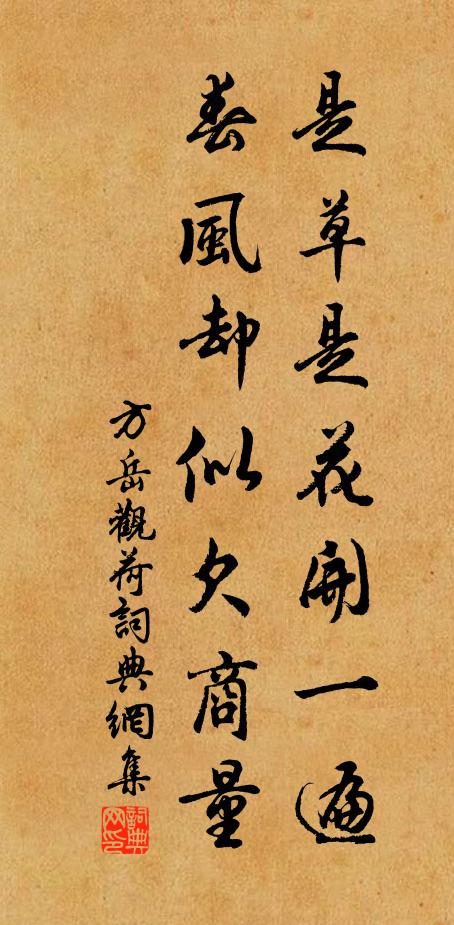 是草是花開一遍
春風却似欠商量
方岳觀荷詞典網集
詞典网印